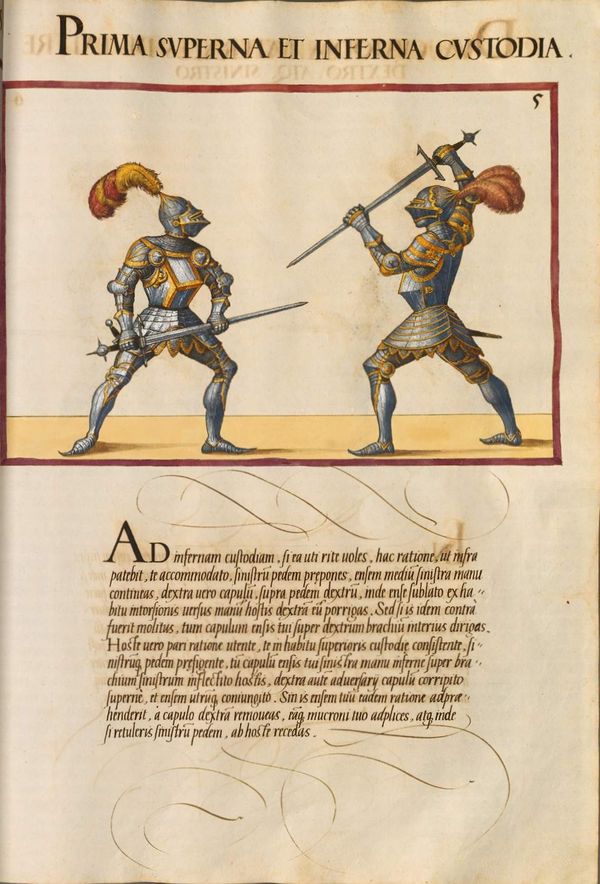 PRIMA SVPERNA ET INFERNA CVSTODIA.
5
AD infernam custodiam, si ea uti rite uoles, hac ratione, ut infra
patebit, te accommodato, sinistrū pedem prepones, ensem mediū sinistra manu
contineas, dextra uero capulū, supra pedem dextrū, inde ense sublato ex ha-
bitu intorsionis uersus manū hostis dextrā eū porrigas. Sed si is idem contrà
fuerit molitus, tum capulum ensis tui super dextrum brachiū interius dirigas.
Hoste uero pari ratione utente, te in habitu superioris custodię consistente, si-
nistrūq, pedem prefigente, tū capulū ensis tui sinistra manu inferne super bra-
chium sinistrum inflectito hostis, dextra autē aduersarij capulū corripito
supernè, et ensem utrūq, coniungito. Sin is ensem tuū eadem ratione adpræ-
henderit, a capulo dextrā remoueas, eāq, mucroni tuo adplices, atq, inde
si retuleris sinistrū pedem, ab hoste recedas.